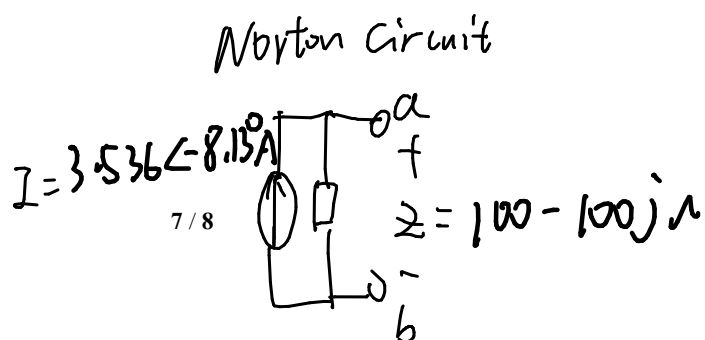 Norton Circuit
a
I=3.536∠-8.13°A
+
7 / 8
Z=100-100jΩ
-
b